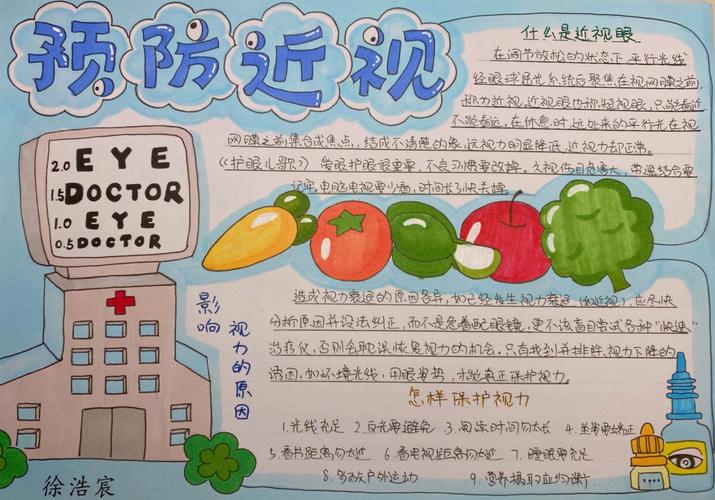 预防近视
什么是近视眼
在调节放松的状态下,平行光线
经眼球屈光系统后聚焦在视网膜之前,
称为近视,近视眼也称短视眼,只能看近
不能看远。在休息时,远处来的平行光在视
网膜之前集合成焦点,结成不清楚的象。远视力明显降低,近视力却正常。
《护眼儿歌》 爱眼护眼很重要,不良习惯要改掉。久视伤目危害大,劳逸结合要
记牢,电脑电视要少看,时间长了快去掉
2.0 EYE
1.5 DOCTOR
1.0 EYE
0.5 DOCTOR
影响
视力的原因
造成视力衰退的原因各异,如已经发生视力衰退(如近视),应尽快
分析原因并设法纠正,而不是急着配眼镜,更不该盲目尝试各种“快速”
治疗仪,否则会耽误恢复视力的机会。只有找到并排除视力下降的
诱因,如环境光线,用眼姿势,才能真正保护视力。
怎样保护视力
1.光线充足 2.反光要避免 3.阅读时间勿太长 4.坐姿要端正
5.看书距离勿太近 6.看电视距离勿太近 7.睡眠要充足
8.多做户外运动 9.营养摄取应均衡!
徐浩宸